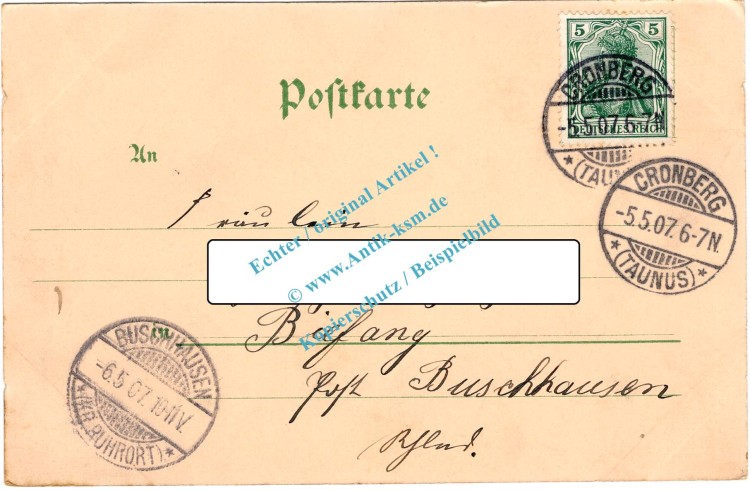 Postkarte
5 5
DEUTSCHES REICH
CRONBERG
-5.5.07.6-7N.
*(TAUNUS)*
CRONBERG
-5.5.07.6-7N.
*(TAUNUS)*
An
Fräulein
Echter / original Artikel !
© www.Antik-ksm.de
Kopierschutz / Beispielbild
in Bifang
Post Buschhausen
Rhld.
BUSCHHAUSEN
-6.5.07.10-11V.
(KR.RUHRORT)